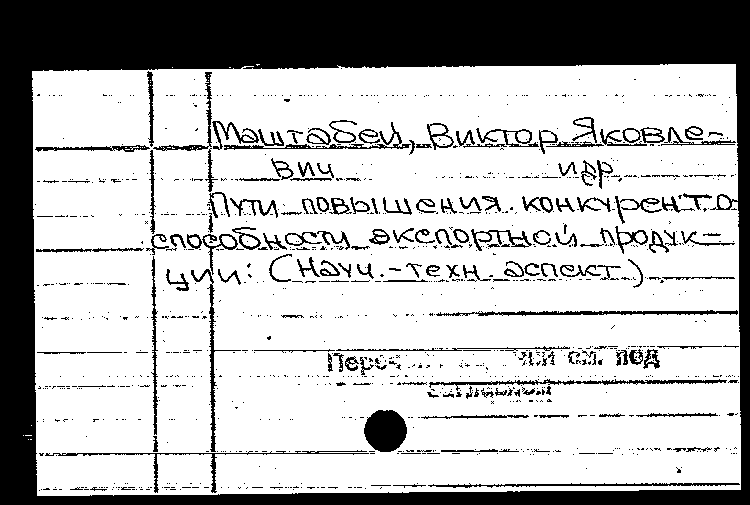 Маштабей, Виктор Яковле-
вич и др.
Пути повышения конкуренто
способности экспортной продук-
ции: (Науч.-техн. аспект)
см. под